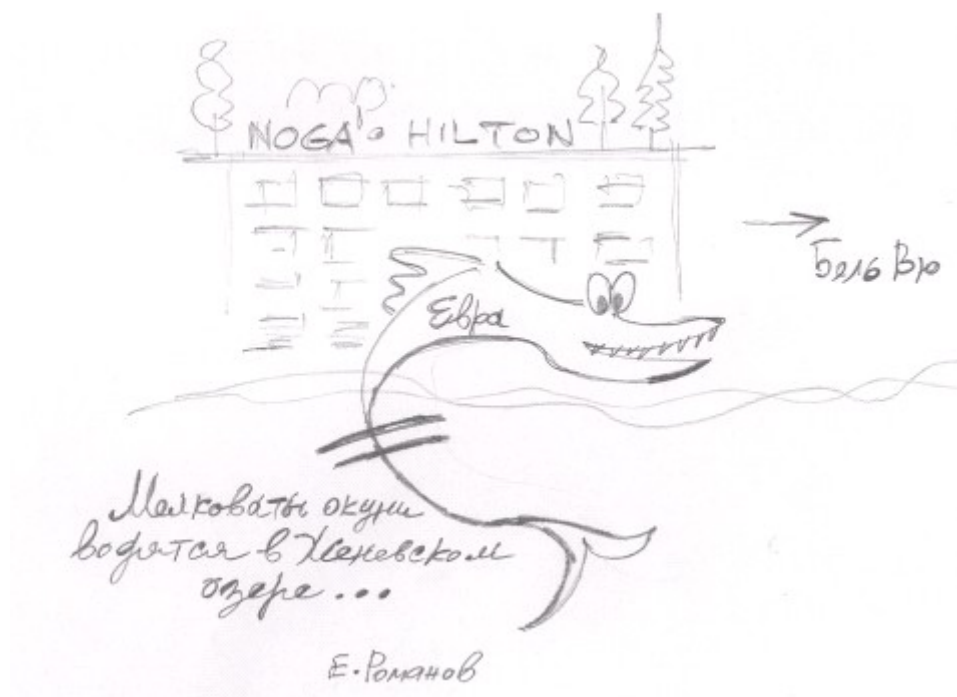 NOGA • HILTON
Бель Вю
Евра
Мелковаты окуни
водятся в Женевском
озере...
Е. Романов